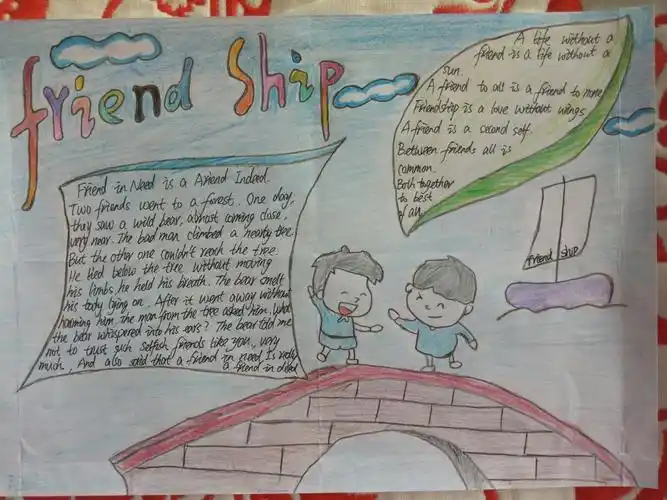 friend Ship
A life without a
friend is a life without a
sun.
A friend to all is a friend to none
Friendship is a love without wings
A friend is a second self.
Between friends all is
common.
Both together
to best
of all
Friend in Need is a Friend Indeed.
Two friends went to a forest. One day,
they saw a wild bear, almost coming close,
very near. The bad man climbed a nearby tree.
But the other one couldn't reach the tree.
He lied below the tree without moving
his limbs, he held his breath. The bear smelt
his body lying on. After it went away without
harming him, the man from the tree asked him, What
the bear whispered into his ears? The bear told me
not to trust such selfish friends like you, very
much, And also said that a friend in need Is really
a friend in deed
friend ship